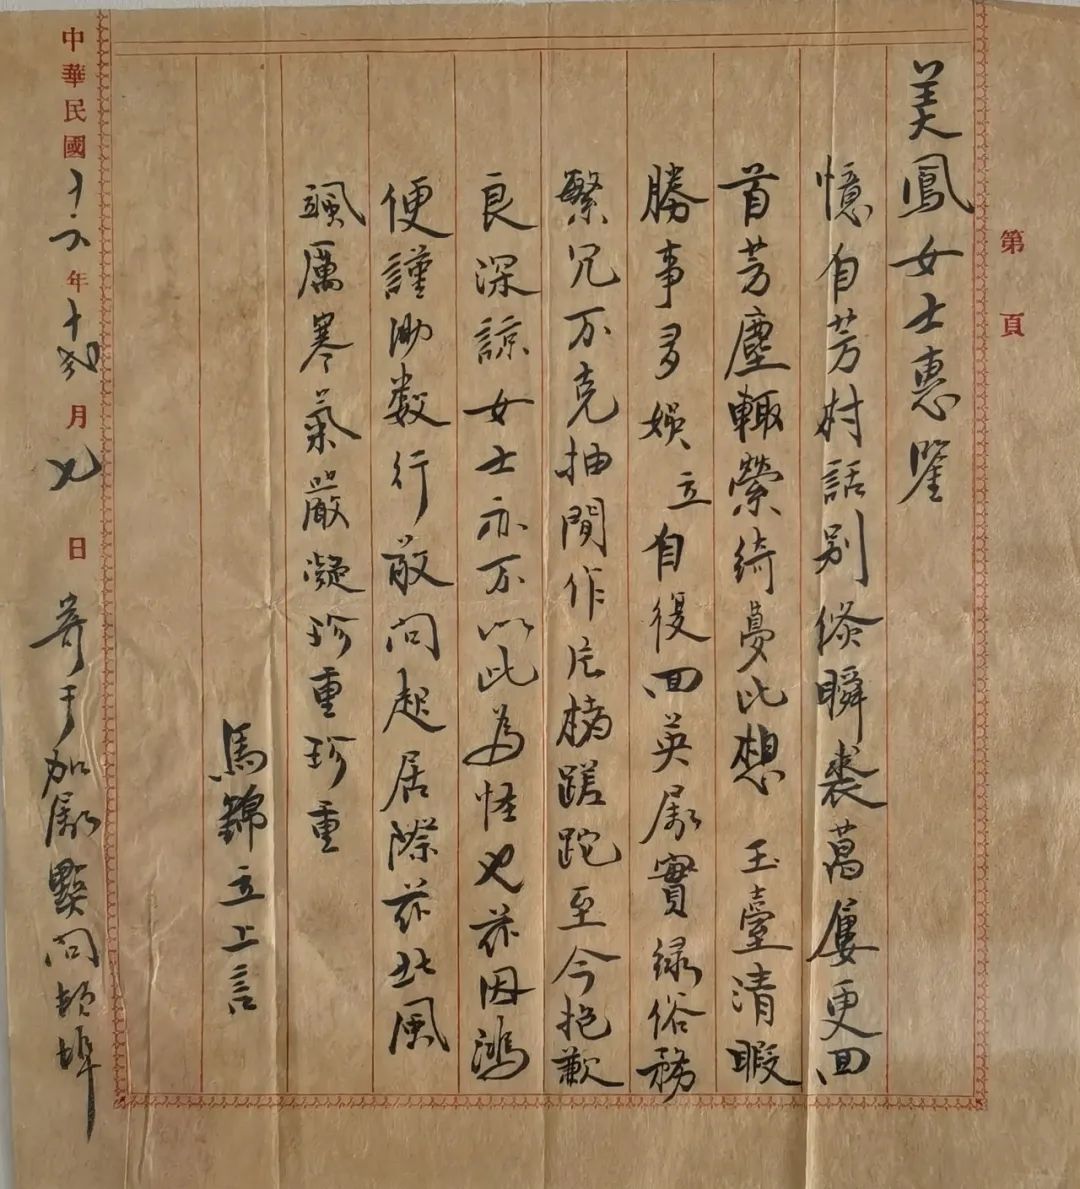 第 頁
美鳳女士惠鑒
憶自芳村話別倏瞬裘葛屢更回
首芳塵輒縈綺夢比想 玉臺清暇
勝事多娛立自後回英屬實緣俗務
繁冗不克抽閒作片楮蹉跎至今抱歉
良深諒女士亦不以此為怪也茲因鴻
便謹泐数行敬問起居際茲北風
颯厲寒氣嚴凝珍重珍重
馬錦立上言
中華民國十六年十弍月七日 寄于加屬點問頓埠